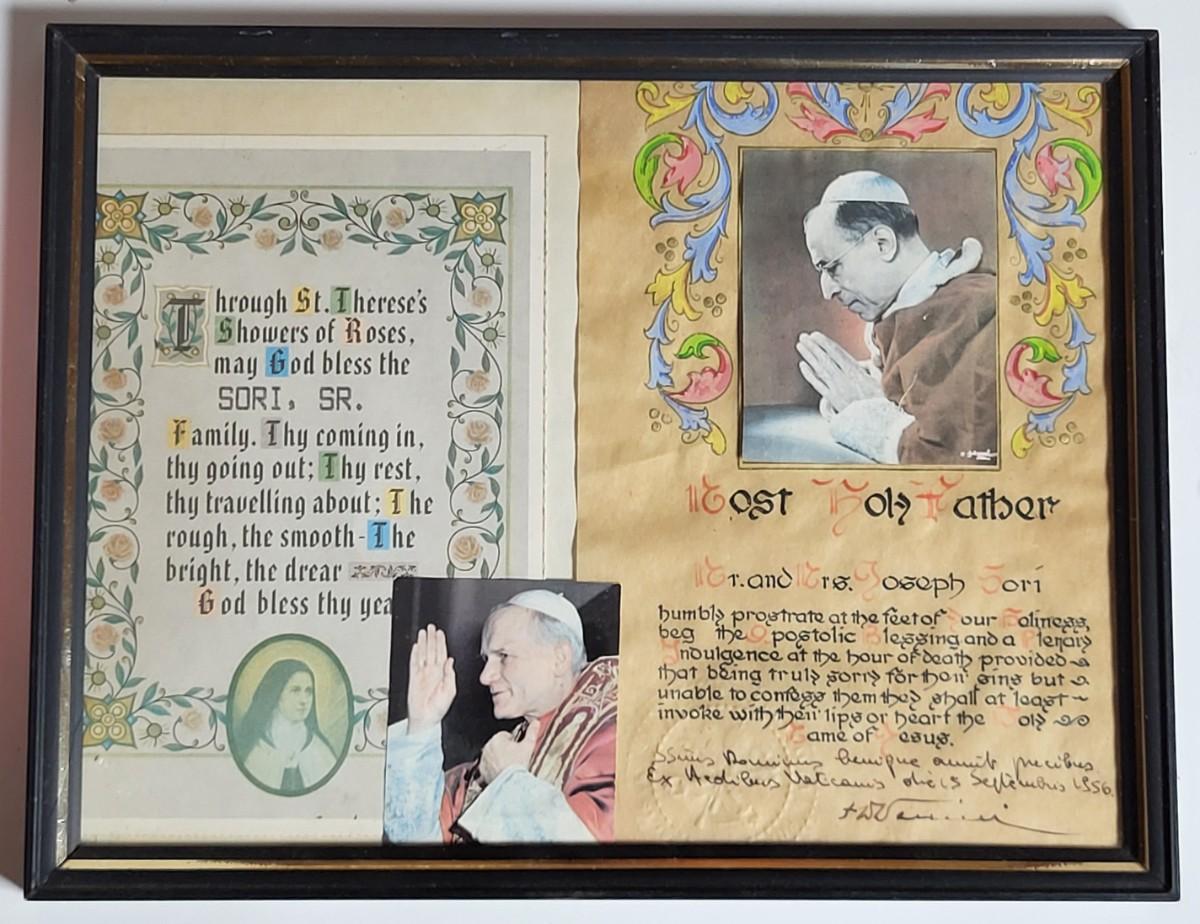 Through St. Therese's
Showers of Roses,
may God bless the
SORI, SR.
Family. Thy coming in,
thy going out; Thy rest,
thy travelling about; The
rough, the smooth-The
bright, the drear
God bless thy yea
Most Holy Father
Mr. and Mrs. Joseph Sori
humbly prostrate at the feet of Your Holiness,
beg the Apostolic Blessing and a Plenary
Indulgence at the hour of death provided
that being truly sorry for their sins but
unable to confess them they shall at least
invoke with their lips or heart the Holy
Name of Jesus.
Ssmus Dominus benigne annuit precibus
Ex Aedibus Vaticanis die 15 Septembris 1956.